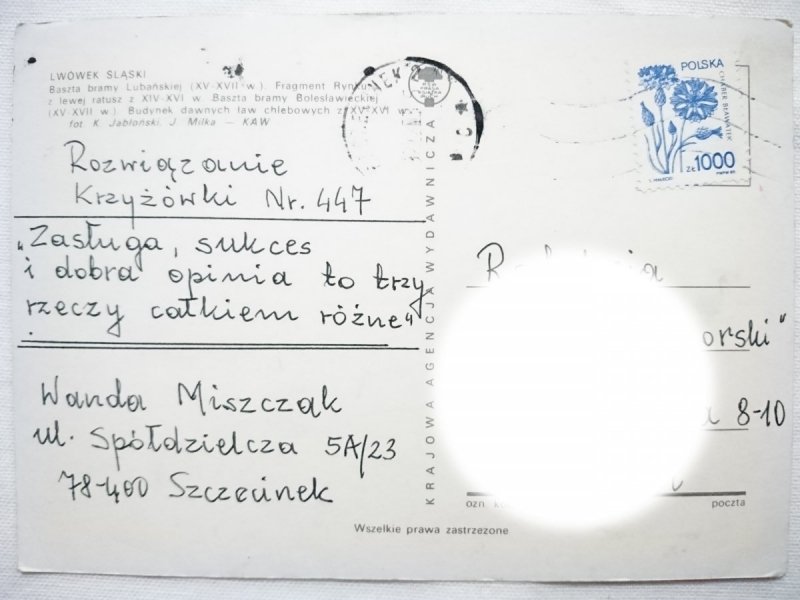 LWÓWEK ŚLĄSKI
Baszta bramy Lubańskiej (XV-XVII w.). Fragment Rynku
z lewej ratusz z XIV-XVI w. Baszta bramy Bolesławieckiej
(XV-XVII w.) Budynek dawnych ław chlebowych z XV-XVI w.
fot. K. Jabłoński, J. Milka — KAW
Rozwiązanie
Krzyżówki Nr. 447
„Zasługa, sukces
i dobra opinia to trzy
rzeczy całkiem różne"
Wanda Miszczak
ul. Spółdzielcza 5A/23
78-400 Szczecinek
KRAJOWA AGENCJA WYDAWNICZA
POLSKA
CHABER BŁAWATEK
ZŁ 1000
orski"
8-10
poczta
Wszelkie prawa zastrzeżone